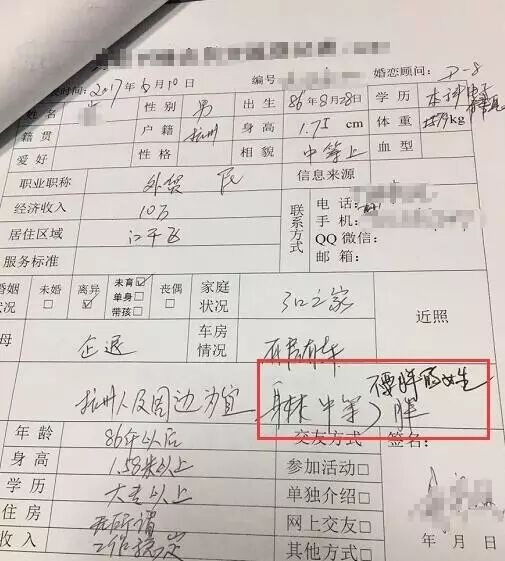 时间：2017年6月10日 编号 婚恋顾问：P-8
姓名 性别 男 出生 86年8月28日 学历 本科
籍贯 户籍 杭州 身高 1.75cm 体重 kg
爱好 性格 相貌 中等上 血型
职业职称 外贸 民 信息来源
经济收入 10万 联系方式 电话：
手机：
居住区域 江干区 QQ微信：
服务标准 邮箱：
婚姻状况 未婚□ 离异☑ 未育☑ 单身□ 带孩□ 丧偶□ 家庭状况 3口之家 近照
母 企退 车房情况 有房有车
杭州人及周边均宜 身材中等 不要胖的女生 胖
年龄 86年以后 交友方式 签名：
身高 1.58米以上 参加活动□
学历 大专以上 单独介绍□
住房 无所谓 网上交友□
收入 工作稳定 其他方式□ 年 月 日